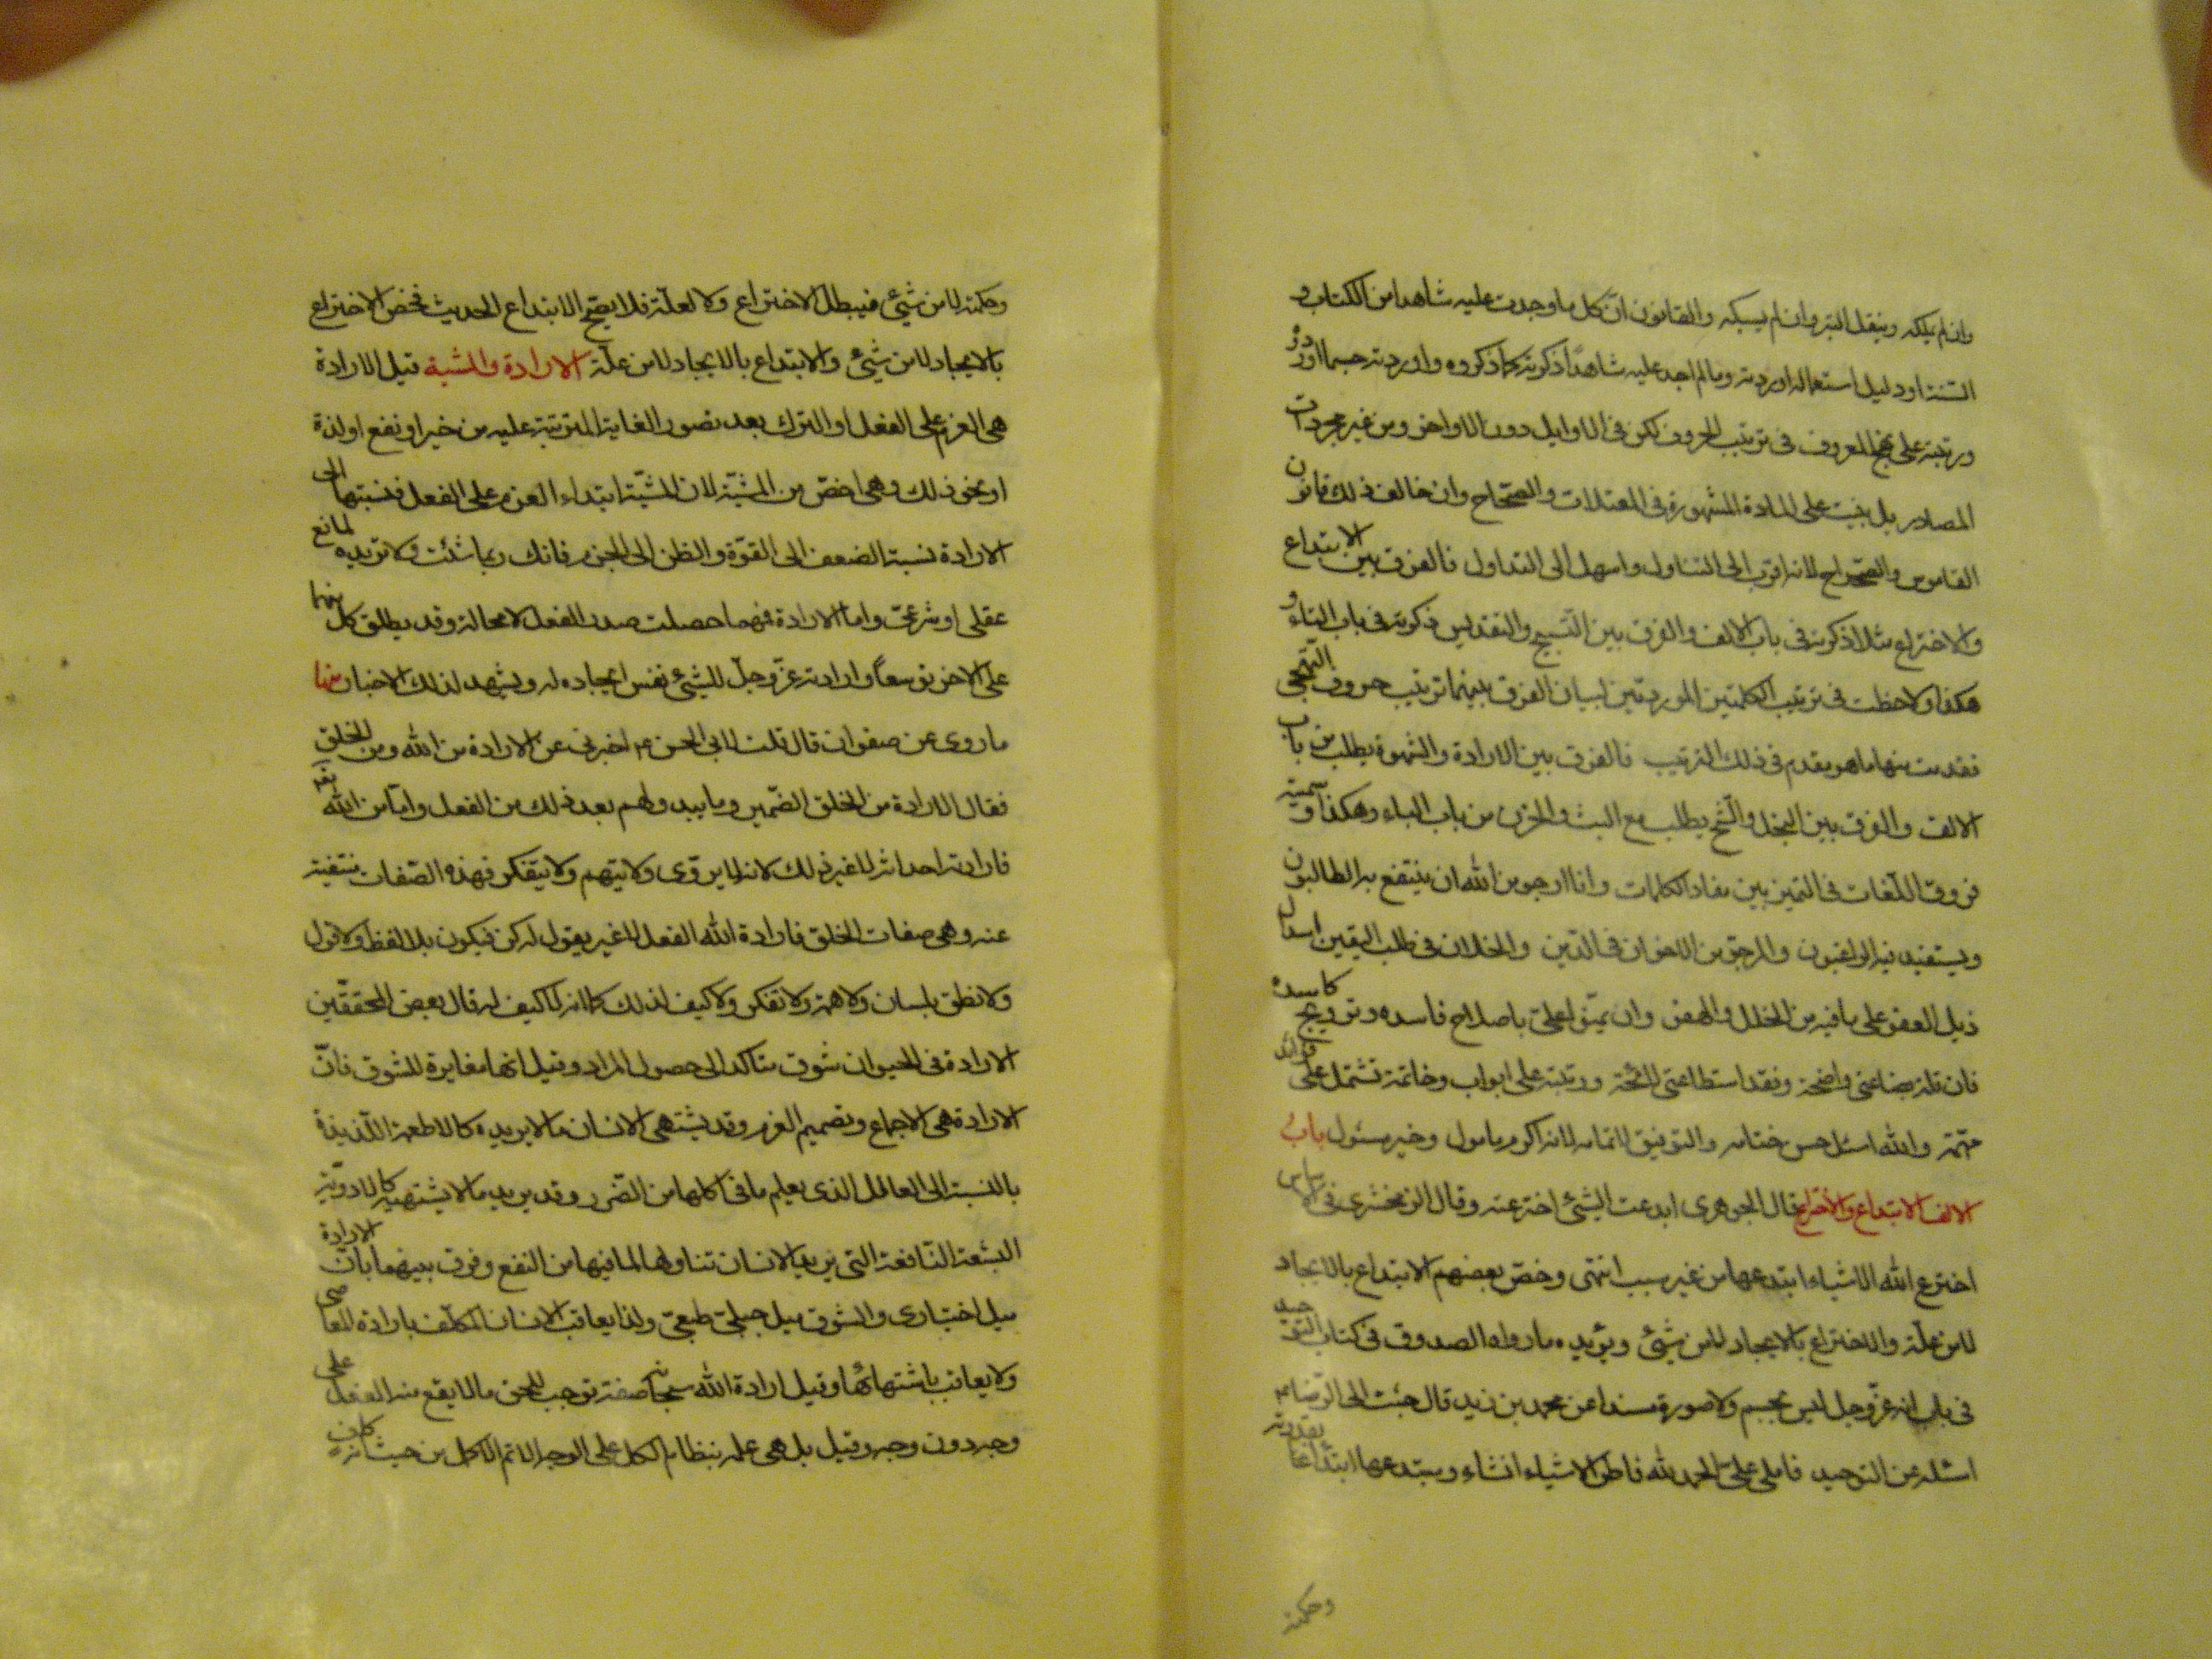 وان لم يملكه وينقل اليه وان لم يسبكه والقانون ان كل ما وجدت عليه شاهدا من الكتاب و
السنة او دليل استعماله اوردته وما لم اجد عليه شاهدًا ذكرته كما ذكروه واوردته حسبما اوردوه
ورتبته على نهج المعروف فى ترتيب الحروف لكن فى الاوايل دون الاواخر ومن غير مجردات
المصادر بل بنيت على المادة المشهورة فى المعتلات والصحاح وان خالف ذلك قانون
القاموس والصحاح لانه اقرب الى التناول واسهل الى التداول فالفرق بين الابتداع
والاختراع مثلا ذكرته فى باب الالف والفرق بين التسبيح والتقديس ذكرته فى باب التاء و
هكذا ولاحظت فى ترتيب الكلمتين الموردتين لبيان الفرق بينهما ترتيب حروف التهجى
فقدمت منهما ما هو مقدم فى ذلك الترتيب فالفرق بين الارادة والشهوة يطلب من باب
الالف والفرق بين البخل والشح يطلب مع البث والحزن من باب الباء وهكذا وسميته
فروق اللغات فى التميز بين مفاد الكلمات وانا ارجو من الله ان ينتفع به الطالبون
ويستفيد فيه الراغبون والمرجو من الاخوان فى الدين والخلان فى طلب اليقين اسدال
ذيل العفو على ما فيه من الخلل والهفو وان يمنوا علىّ باصلاح فاسده وترويج كاسده
فان قلة بضاعتى واضحة وفقد استطاعتى لائحة ورتبته على ابواب وخاتمة تشتمل على فوائد
مهمة والله اسئل حسن ختامه والتوفيق لاتمامه لانه اكرم مامول وخير مسئول باب
الالف الابتداع والاختراع قال الجوهرى ابدعت الشئ اخترعته وقال الزمخشرى فى الاساس
اخترع الله الاشياء ابتدعها من غير سبب انتهى وخص بعضهم الابتداع بالايجاد
لا من علة والاختراع بالايجاد لا من شئ ويؤيده ما رواه الصدوق فى كتاب التوحيد
فى باب انه عز وجل ليس بجسم ولا صورة مسندا عن محمد بن زيد قال جئت الى الرضا عم
اسئله عن التوحيد فاملى علىّ الحمد لله فاطر الاشياء انشاء ومبتدعها ابتداعًا بقدرته
وحكمته
وحكمته لا من شئ فيبطل الاختراع ولا لعلة فلا يصح الابتداع الحديث فخص الاختراع
بالايجاد لا من شئ والابتداع بالايجاد لا من علة الارادة والمشية قيل الارادة
هى العزم على الفعل او الترك بعد تصور الغاية المترتبة عليه من خير او نفع او لذة
او نحو ذلك وهى اخص من المشية لان المشية ابتداء العزم على الفعل فنسبتها الى
الارادة نسبة الضعف الى القوة والظن الى الجزم فانك ربما شئت ولا تريده لمانع
عقلى او شرعى واما الارادة فمهما حصلت صدر الفعل لا محالة وقد يطلق كل منهما
على الاخر توسعاً وارادته عز وجل للشئ نفس ايجاده له ويشهد لذلك الاخبار منها
ما روى عن صفوان قال قلت لابى الحسن عم اخبرنى عن الارادة من الله ومن الخلق
فقال الارادة من الخلق الضمير وما يبدو لهم بعد ذلك من الفعل وامّا من الله تعم
فارادته احداثه لا غير ذلك لانه لا يروى ولا يتهم ولا يتفكر فهذه الصفات منتفية
عنه وهى صفات الخلق فارادة الله الفعل لا غير يقول له كن فيكون بلا لفظ ولا قول
ولا نطق بلسان ولا همة ولا تفكر ولا كيف لذلك كما انه لا كيف له قال بعض المحققين
الارادة فى الحيوان شوق متاكد الى حصول المراد وقيل انها مغايرة للشوق فانّ
الارادة هى الاجماع وتصميم العزم وقد يشتهى الانسان ما لا يريده كالاطعمة اللذيذة
بالنسبة الى العاقل الذى يعلم ما فى اكلها من الضرر وقد يريد ما لا يشتهيه كالادوية
البشعة النافعة التى يريد الانسان تناولها لما فيها من النفع وفرق بينهما بان الارادة
ميل اختيارى والشوق ميل جبلىّ طبيعى ولذا يعاقب الانسان المكلف بارادة المعاصى
ولا يعاقب باشتهائها وقيل ارادة الله سبحانه صفة توجب للحق مالا يقع منه الفعل على
وجه دون وجه وقيل بل هى علمه بنظام الكل على الوجه الاتم الاكمل من حيث انه كاف